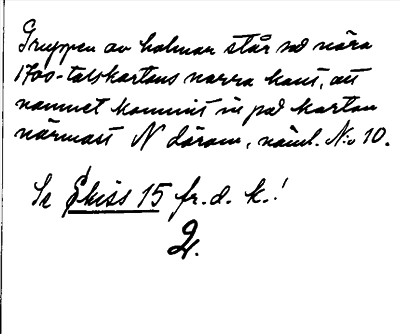 Gruppen av holmar står så nära
1700-talskartans norra kant, att
namnet kommit in på kartan
närmast N därom, näml. N:o 10.
Se Skiss 15 fr. d. k.!
2.